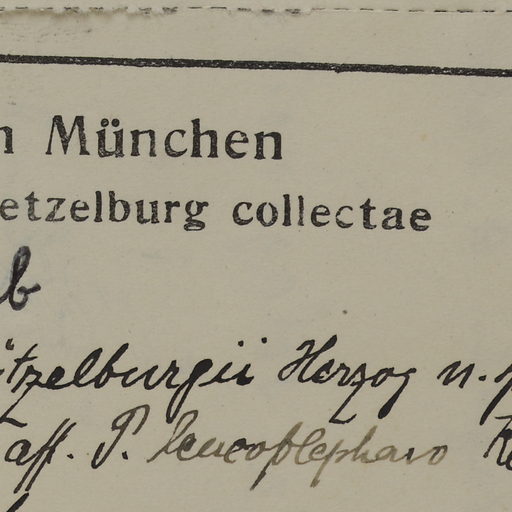 n München
etzelburg collectae
b
ützelburgii Herzog n.
aff. P. leucoblepharo